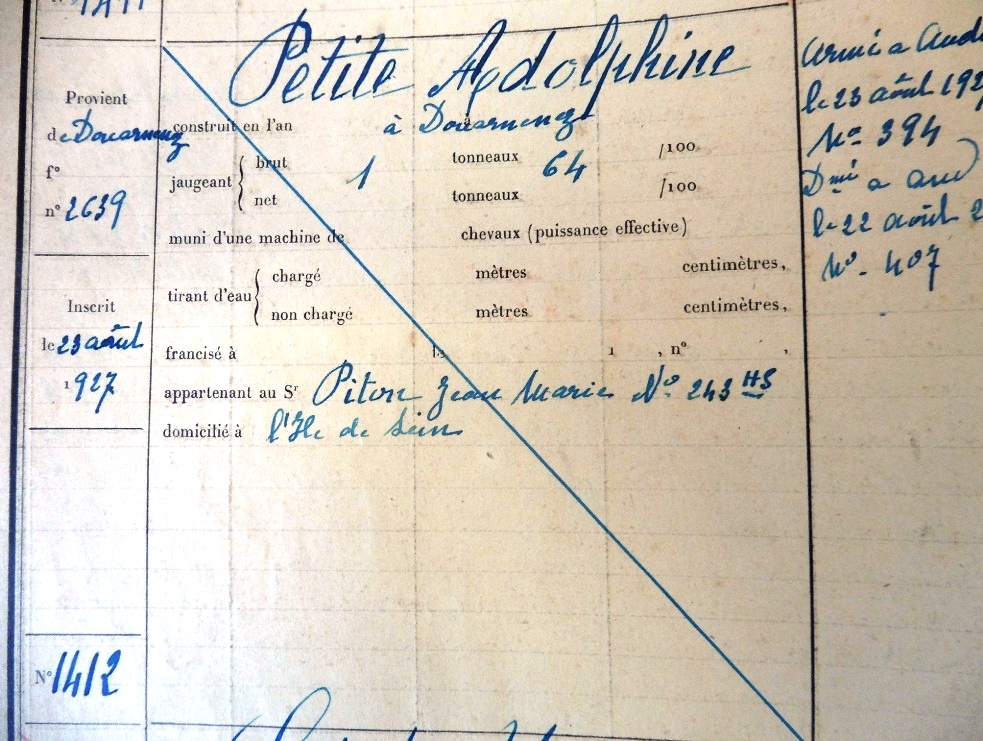 Petite Adolphine
Provient
de Douarnenez
f°
n° 2639
Inscrit
le 23 août
1927
N° 1412
construit en l'an à Douarnenez
jaugeant { brut 1 tonneaux 64 /100
net tonneaux /100
muni d'une machine de chevaux (puissance effective)
tirant d'eau { chargé mètres centimètres,
non chargé mètres centimètres,
francisé à le 1 , n° ,
appartenant au Sr Piton Jean Marie N° 243 HS
domicilié à l'Ile de Sein
Armé a Aud
le 23 août 192
No 394
Dmé a Aud
le 22 août 2
No. 407